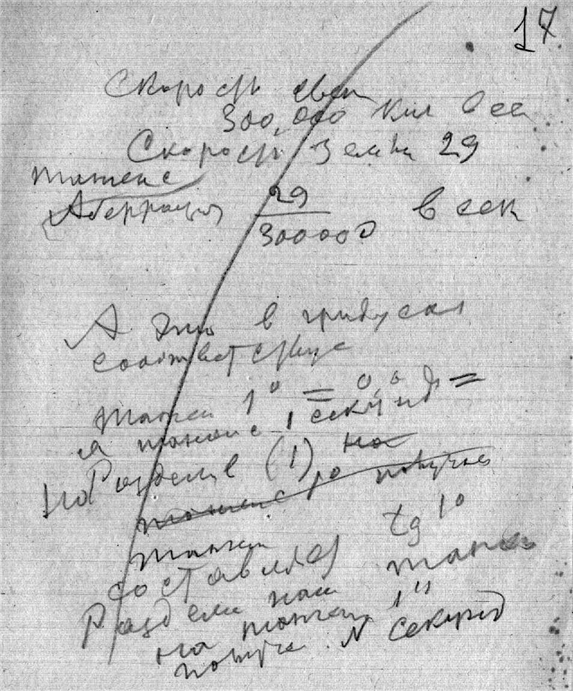 17.
Скорость свет
300,000 кил в се
Скорость Земли 29
тангенс
Аберрация 29/300000 в сек
А это в градусах
соответствует
танген 1° = 0,0 =
а тангенс 1 секунд
но Разделив (1) на
тангенс получ
танген tg 1°
составляет
Разделив наш танген
на танген 1"
получ. N секунд